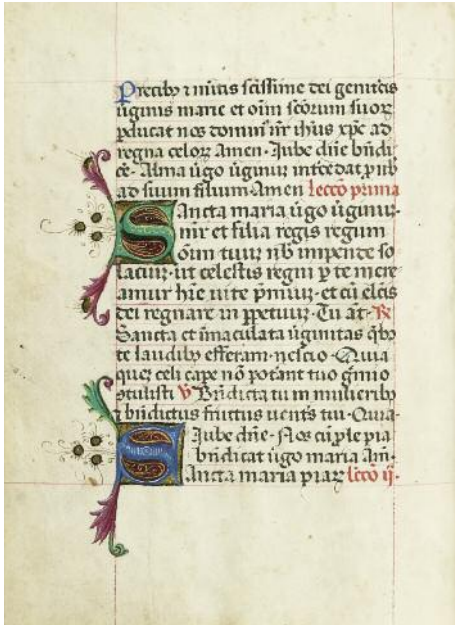 Precibꝫ ⁊ mitis scissime dei genitcis
v̄ginis marie et oīm scōrum suoꝝ
ꝑducat nos domin̄ nr̄ ihūs xp̄c ad
regna celoꝝ Amen · Jube dn̄e bn̄di
ce · Alma v̄go v̄ginuꝫ int̄cedat ꝓ nob̄
ad suum filium · Amen lecc̄o prima
Sancta maria v̄go v̄ginuꝫ ·
mr̄ et filia regis regum
oīm tuuꝫ nob̄ impende so
lacuꝫ · ut celestis regni ꝑ te mere
amur hr̄e vite p̄miuꝫ · et cū elcīs
dei regnare in ꝑpetuuꝫ · Tu āt · R̄
Sancta et īmaculata v̄ginitas qͥbꝫ
te laudibꝫ efferam · nescio · Quia
queꝫ celi cape nō potant tuo gͤmio
ꝯtulisti V̄ Bn̄dicta tu in mulieribꝫ
⁊ bn̄dictus fructus vent̄s tui · Quia ·
Jube dn̄e · Nos cū ꝓle pia
bn̄dicat v̄go maria Am̄ ·
Sancta maria piaꝝ lecc̄o ij ·